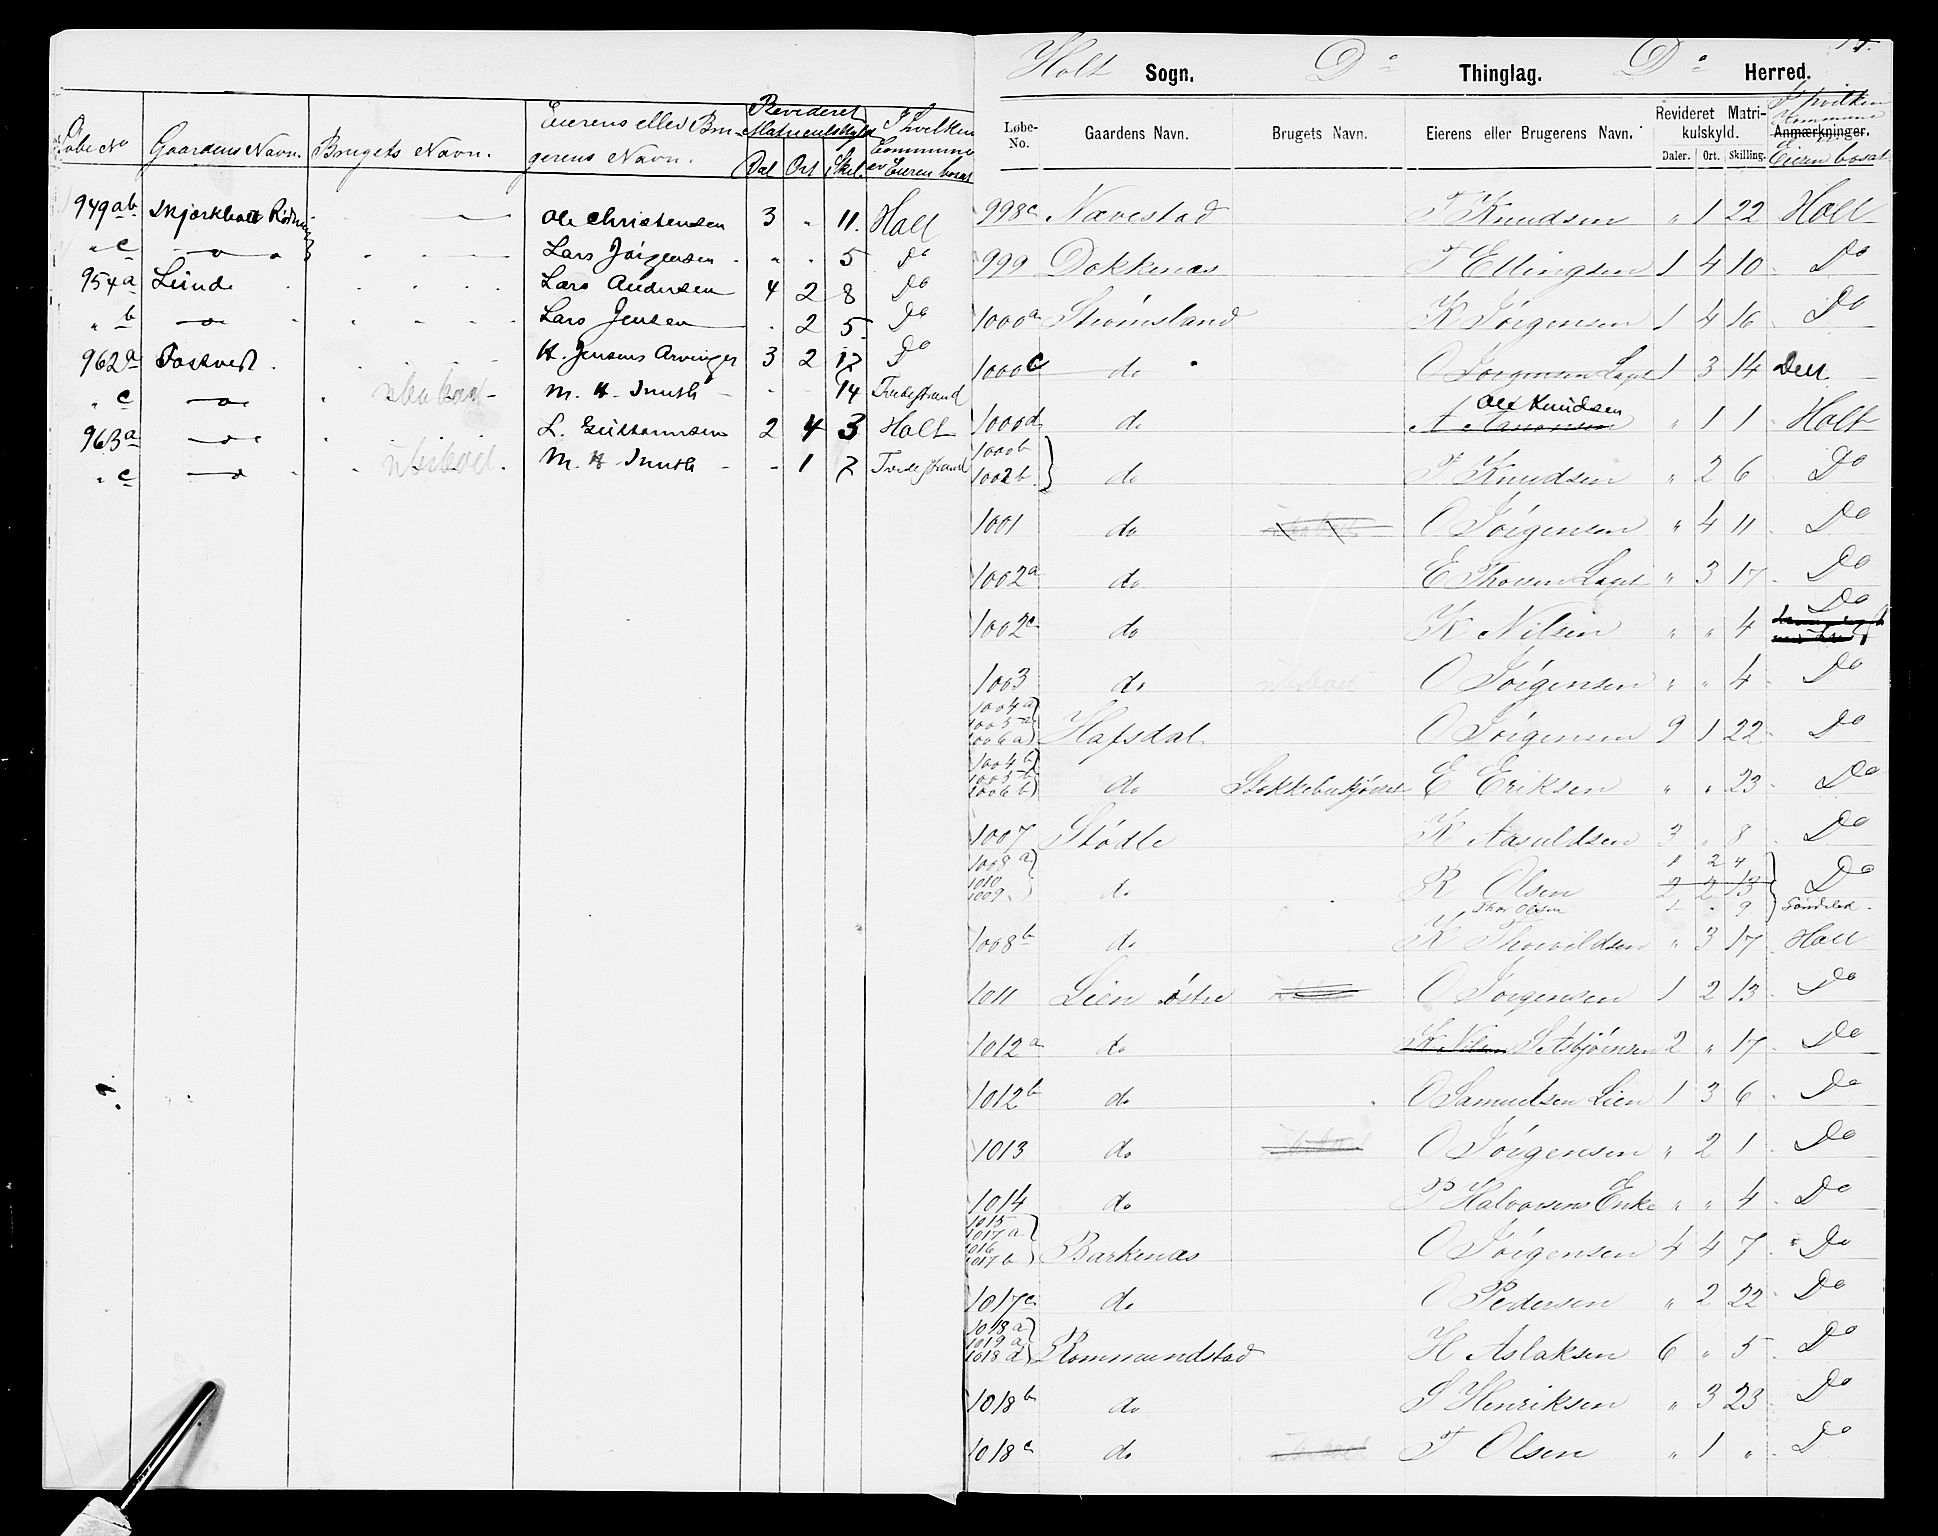 Løbe No Gaardens Navn. Brugets Navn. Eierens eller Bru- gerens Navn. Revideret Matriculskyld Dal Ort Skil. I hvilken Commune er Eieren bosat
949 ab Ole Christensen 3 " 11. Holt
" c — " — Lars Jørgensen " . 5 Do
954 a Lunde Lars Andersen 4 2 8 Do
" b — " — Lars Jensen . 2 5 Do
962 a Fostvedt H. Jensens Arvinger 3 2 12 Do
" c — " — ubeboet M. H. Smith - - 14 Tvedestrand
963 a — " — L. Guttormsen 2 4 3 Holt
" c — " — ubeboet. M. H. Smith - 1 2 Tvedestrand
Holt Sogn. Do Thinglag. Do Herred.
Løbe-No. Gaardens Navn. Brugets Navn. Eierens eller Brugerens Navn. Revideret Matrikulskyld. Daler. Ort. Skilling. Anmærkninger. I hvilken Kommune er Eieren bosat
998 c Nævestad T Knudsen " 1 22 Holt
999 Dokkenæs T Ellingsen 1 4 10 Do
1000 a Strømsland K Jørgensen 1 4 16 Do
1000 c do O Jørgensen Laget 1 3 14 Do
1000 d do A Aanonsen Ole Knudsen " 1 1 Holt
1000 b
1002 b do T Knudsen " 2 6 Do
1001 do ubeboet O Jørgensen " 4 11 Do
1002 a do E Thorsen Laget " 3 17 Do
1002 c do K Nilsen " " 4 Do
1003 do ubeboet O Jørgensen " " 4 Do
1004 a
1005 a
1006 a Hafsdal O Jørgensen 9 1 22 Do
1004 b
1005 b
1006 b do E Eriksen " " 23 Do
1007 Stødle K Aasuldsen 3 " 8 Do
1008 a 1 2 4
1010
1009 do R Olsen 2 2 13 Do
Thor Olsen 1 " 9 Søndeled
1008 b do K Thorvildsen " 3 17 Holt
1011 Lien østre O Jørgensen 1 2 13 Do
1012 a do K Nilsen S Asbjørnsen 2 " 17 Do
1012 b do O Samuelsen Lien 1 3 6 Do
1013 do ubeboet O Jørgensen " 2 1 Do
1014 do P Halvorsens Enke " " 4 Do
1015
1017 a
1016
1017 b Barkenæs O Jørgensen 4 4 7 Do
1017 c do O Pedersen " 2 22 Do
1018 a
1019 a
1018 d Rommundstad H Aslaksen 6 " 5 Do
1018 b do S Henriksen " 3 23 Do
1018 c do ubeboet T Olsen " 1 " Do